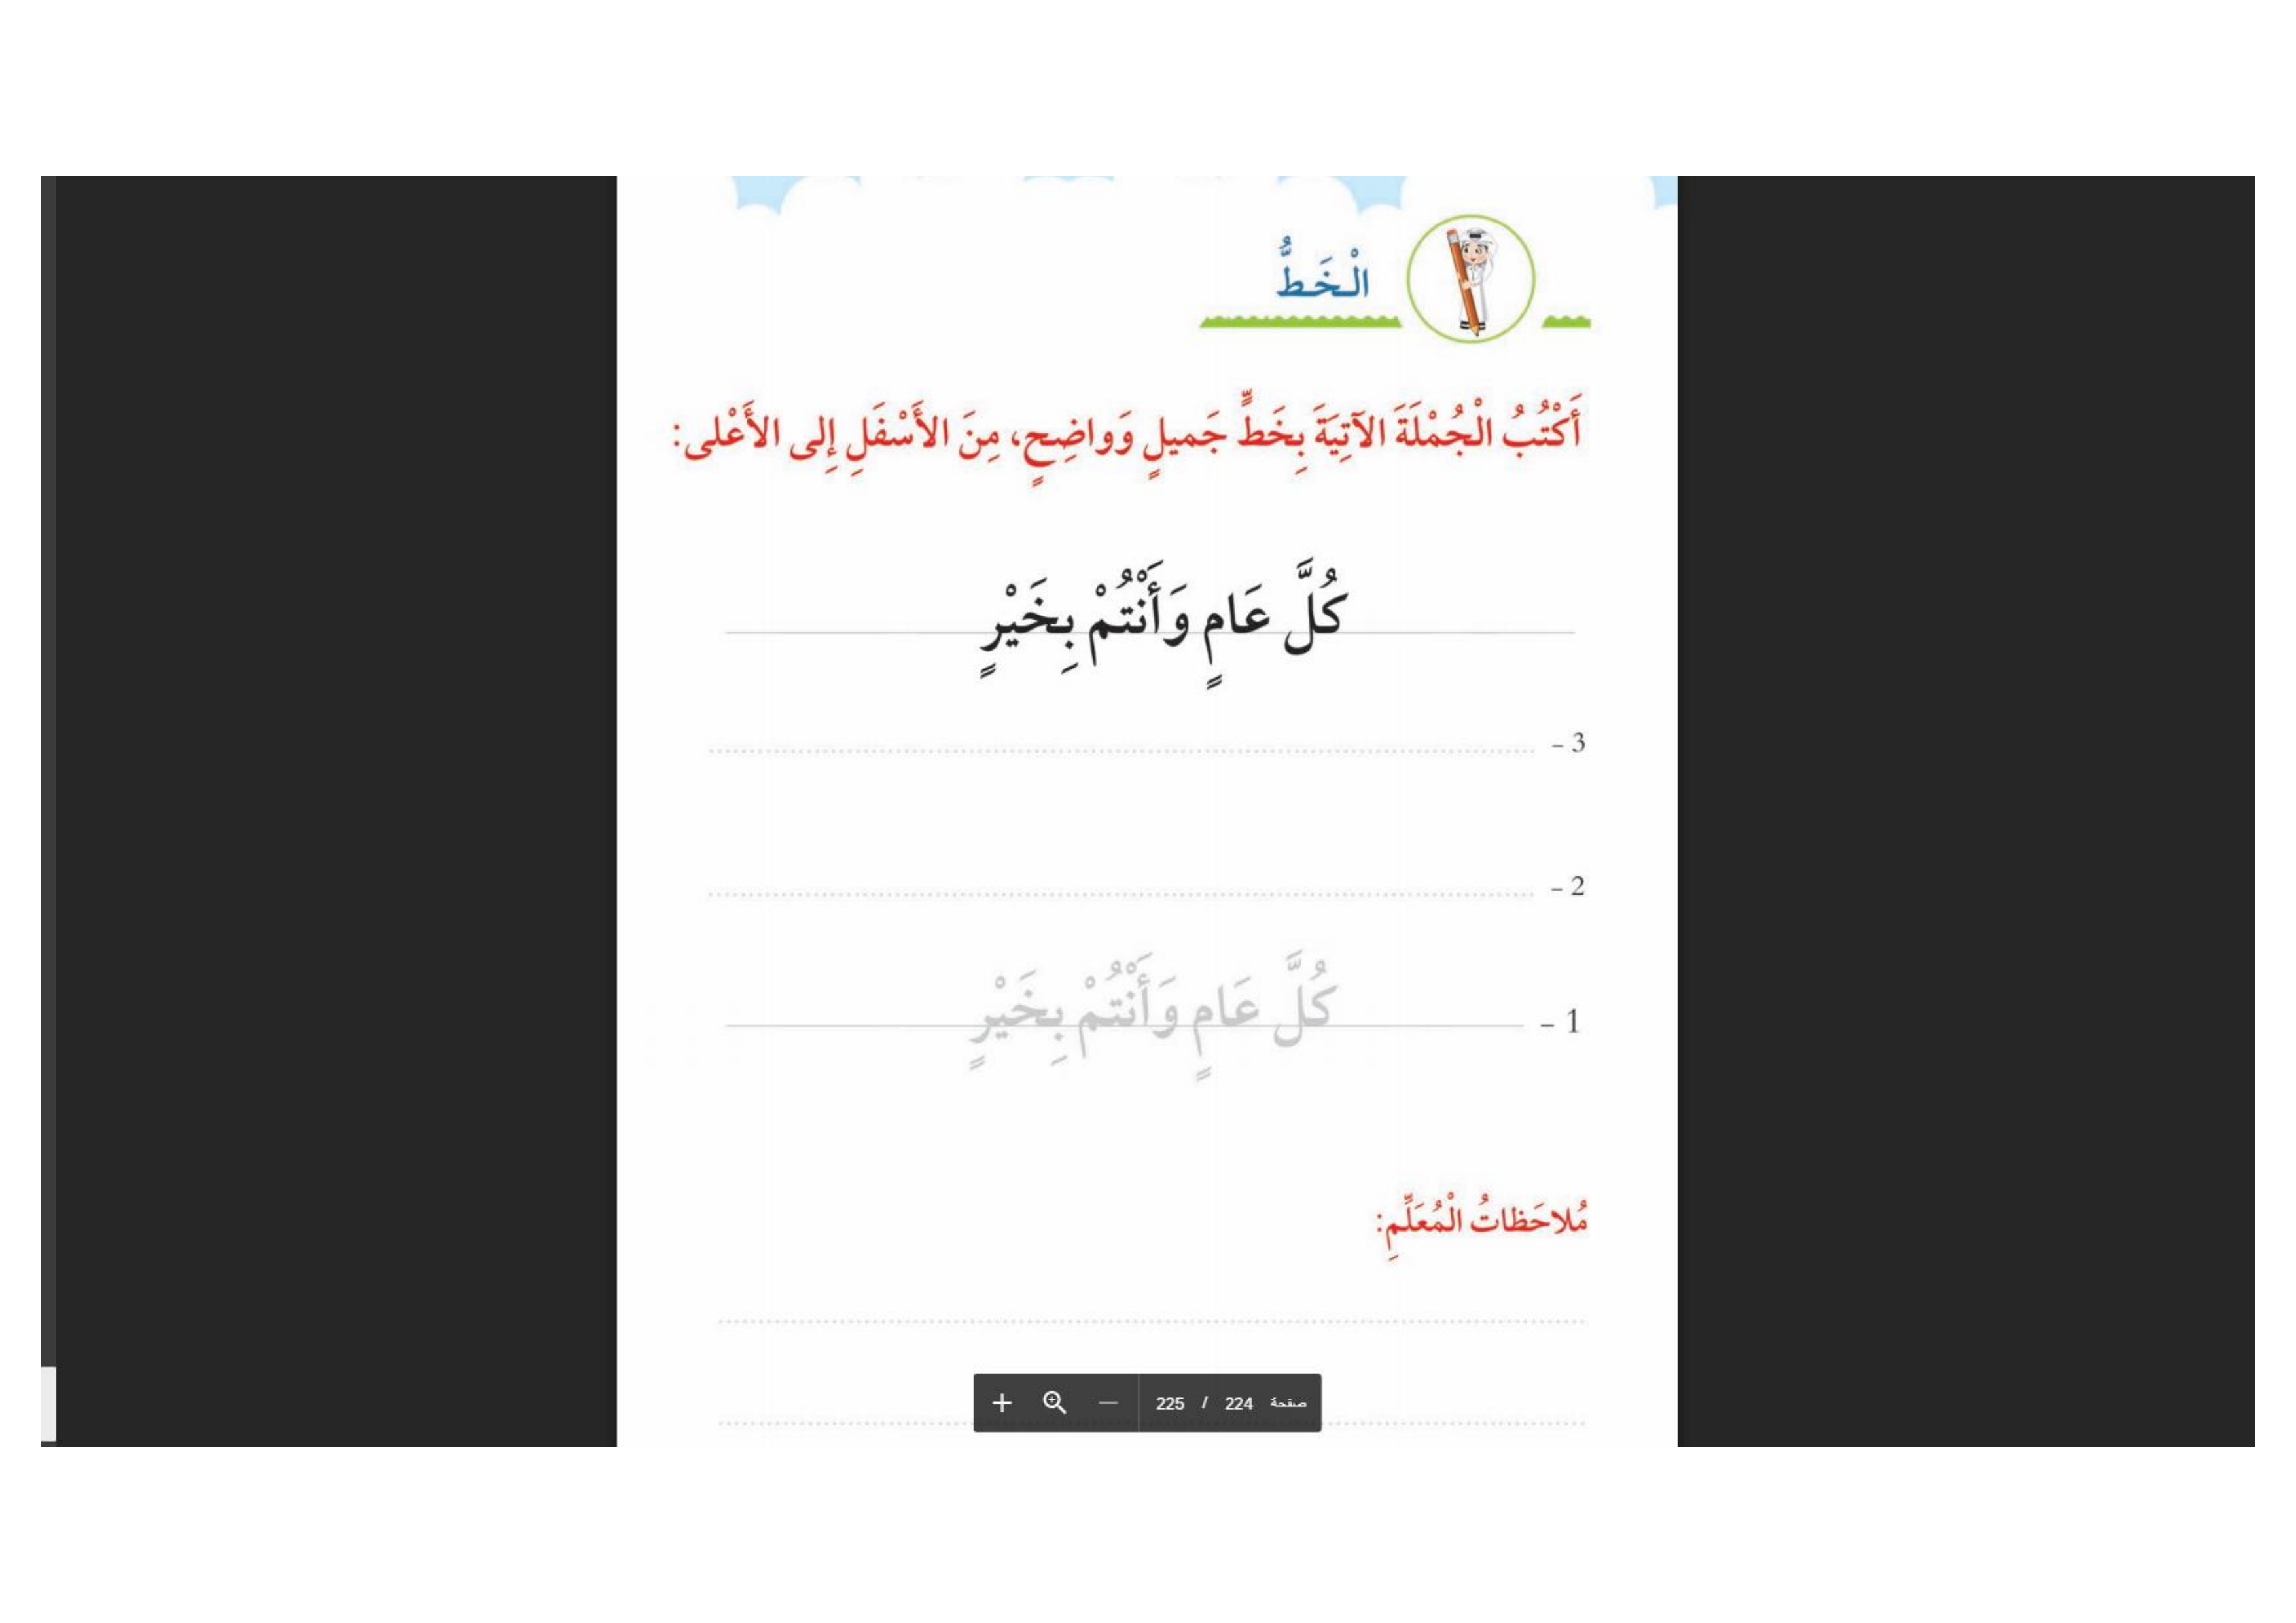 الْخَطُّ
أَكْتُبُ الْجُمْلَةَ الآتِيَةَ بِخَطٍّ جَميلٍ وَواضِحٍ، مِنَ الأَسْفَلِ إِلى الأَعْلى:
كُلَّ عَامٍ وَأَنْتُمْ بِخَيْرٍ
3 -
2 -
1 - كُلَّ عَامٍ وَأَنْتُمْ بِخَيْرٍ
مُلاحَظاتُ الْمُعَلِّمِ:
صفحة 224 / 225